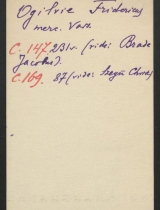 Ogilvie Fridericus
merc. Vars.
C. 147. 231v. (vide: Brade
Jacobus).
C. 169. 87 (vide: